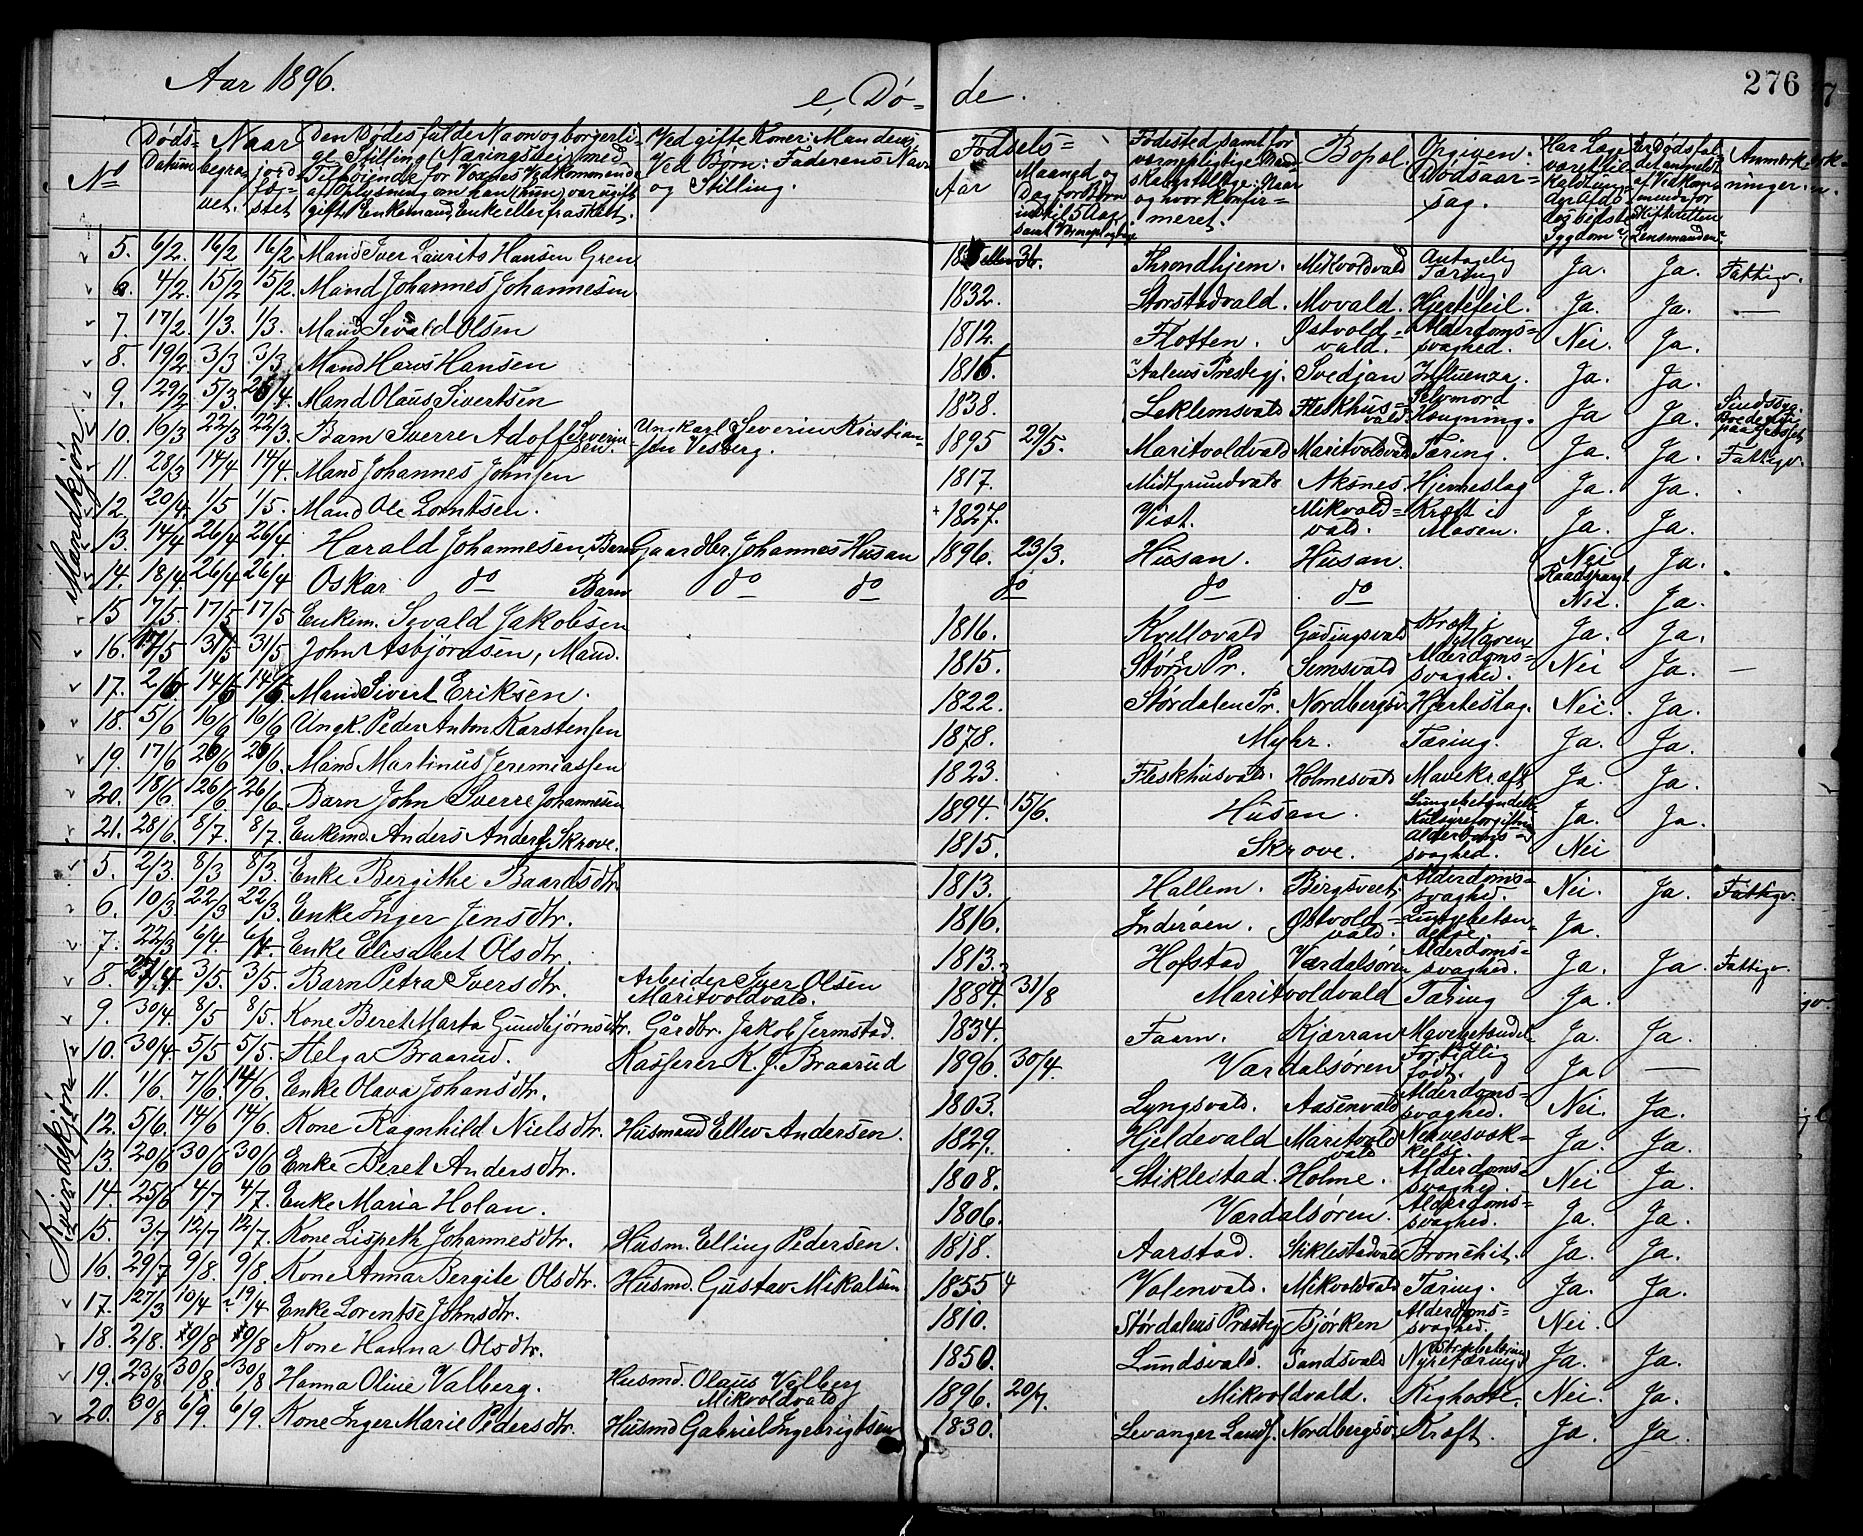 Aar 1896.
e, Dø-
de.
276
No
Døds-
Datum
Naar
begra-
vet.
jord
fæ-
stet
Den Dødes fulde Navn og borgerli-
ge Stilling (Næringsvei) med
Tilføiende for Voxnes Vedkommende
af Oplysning om han (hun) var ugift
gift, Enkemand, Enke eller fraskilt.
Ved gifte Koner: Mandens,
Ved Børn: Faderens Navn
og Stilling.
Fødsels-
Aar
Maaned og
Dag for Børn
indtil 5 Aar
samt Værnepligtige
Fødested samt for
værnepligtige Mand-
skaber tillige: Naar
og hvor Konfir-
meret.
Bopæl.
Opgiven
Dødsaar-
sag.
Er Dødsfal-
det anmeldt
Skifteretten
Lensmanden?
Anmærk-
ninger.
Mandkjøn
5. 6/2. 16/2 16/2 Mand Iver Laurits Hansen Gren Throndhjem. Mikvoldvald Antagelig Tæring Ja. Ja. Fattigv.
6. 4/2. 15/2 15/2. Mand Johannes Johannesen 1832. Storstadvald. Movald. Hjertefeil. Ja. Ja. —
7. 17/2 1/3. 1/3. Mand Sevald Olsen 1812. Flotten. Østvold-vald. Alderdoms-svaghed. Nei. Ja.
8. 19/2 3/3 3/3 Mand Hans Hansen 1816. Aalens Prestegj. Svedjan Influenza. Ja. Ja.
9. 29/2 5/3. Mand Olaus Sivertsen 1838. Leklemsvald Fleskhus-vald Selvmord Hængning. Ja Ja. Sindssyg.
10. 16/3 22/3 22/3. Barn Sverre Adolf Severin-sen. Ungkarl Severin Kristian-sen Vesberg. 1895 29/5. Maritvoldvald Maritvoldvald Tæring. Ja. Ja. Fattigv.
11. 28/3 14/4 14/4. Mand Johannes Johnsen 1817. Midtgrundvald Aksnes. Hjerneslag Ja. Ja.
12. 20/4. 1/5 1/5. Mand Ole Lorntsen. 1827. Vist. Mikvold-vald. Kræft i Maven. Ja. Ja.
13. 14/4 26/4 26/4. Harald Johannesen, Barn Gaardbr. Johannes Husan 1896. 23/3. Husan. Husan Nei Ja.
14. 18/4. 26/4 26/4 Oskar do Barn do do do do do Nei. Ja.
15 7/5 17/5 17/5 Enkem. Sevald Jakobsen 1816. Kvellovald Gudingsvald Kræft i Maven Ja. Ja.
16. 17/5 31/5 31/5 John Asbjørnsen, Mand. 1815. Støren Pr. Semsvald Alderdoms-svaghed. Nei Ja. —
17. 2/6 14/6 14/6. Mand Sivert Eriksen. 1822. Størdalen Pr. Nordbergsv. Hjerteslag. Nei. Ja.
18. 5/6 16/6 16/6 Ungk. Peder Anton Karstensen 1878. Myhr. Tæring. Ja. Ja.
19. 17/6 26/6 26/6. Mand Martinus Jeremiassen 1823. Fleskhusvald. Holmesvald Mavekræft Ja. Ja.
20. 18/6. 26/6. 26/6. Barn John Sverre Johannesen 1894. 15/6. Husan. Lungebetændelse Kulsyreforgiftning Ja. Ja.
21. 28/6 8/7 8/7. Enkemd. Anders Anders. Skrove. 1815. Skrove. Alderdoms-svaghed. Nei
Kvindekjøn
5. 2/3. 8/3 8/3. Enke Bergithe Baardsdtr. 1813. Hallem. Bergsveet Alderdoms-svaghed. Nei. Ja. Fattigv.
6. 10/3. 22/3 22/3. Enke Inger Jensdtr. 1816. Inderøen. Østvold-vald. Lungebetæn-delse. Ja.
7. 22/3 6/4. 6/4. Enke Elisabet Olsdtr. 1813. Hofstad Værdalsøren Alderdoms-svaghed. Ja. Ja. Fattigv.
8. 27/4 3/5 3/5. Barn Petra Iversdtr. Arbeider Iver Olsen Maritvoldvald. 1887. 31/8 Maritvoldvald Tæring Ja.
9. 30/4. 8/5 8/5. Kone Beret Marta Gundbjørnsdtr. Gårdbr. Jakob Jermstad. 1834. Faarn. Kjærran Mavebetændelse Ja. Ja.
10. 30/4. 5/5 5/5. Helga Braarud. Kasserer K. J. Braarud 1896. 30/4. Værdalsøren Fortidlig født. Ja —
11. 1/6. 7/6. 14/6. Enke Olava Johansdtr. 1803. Lyngsvald. Aasenvald Alderdoms-svaghed. Nei. Ja.
12. 5/6. 14/6 14/6. Kone Ragnhild Nielsdtr. Husmand Ellev Andersen. 1829. Hjeldevald Maritvold-vald Nervesvæk-kelse. Ja. Ja.
13. 20/6 30/6 30/6 Enke Beret Andersdtr. 1808. Stiklestad. Holme. Alderdoms-svaghed. Nei Ja.
14. 25/6 4/7 4/7. Enke Maria Holan. 1806. Værdalsøren. Alderdoms-svaghed. Ja. Ja.
15. 3/7 12/7 12/7. Kone Lispeth Johannesdtr. Husm. Elling Pedersen. 1818. Aarstad. Stiklestadvald Bronchit. Ja. Ja.
16. 29/7 9/8. 9/8. Kone Anna Bergite Olsdtr. Husmd. Gustav Mikalsen 1855 4 Volenvald. Mikvoldvald Tæring. Ja. Ja.
17. 27/3 10/4 ? 19/4 Enke Lorentse Johnsdtr. 1810. Størdalens Præstegj. Bjørken Alderdoms-svaghed. Nei.
18. 2/8. 9/8 9/8 Kone Hanna Olsdtr. 1850. Lundsvald. Sandsvald Nyretæring Ja. Ja.
19. 23/8 30/8. 30/8 Hanna Oline Valberg. Husmd. Olaus Valberg Mikvoldvald 1896. 20/7. Mikvoldvald. Kighoste. Nei. Ja.
20. 30/8 6/9. 6/9. Kone Inger Marie Pedersdtr. Husmd Gabriel Ingebrigtsen 1830. Levanger Lands. Nordbergsv. Kræft. Ja. Ja.